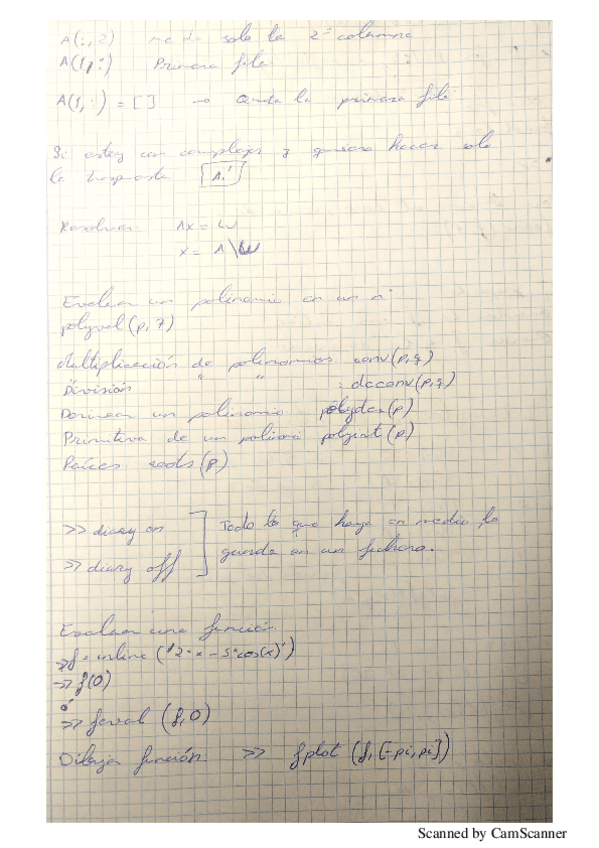 A(:,2) me da solo la 2ª columna
A(1,:) Primera fila
A(1,:) = [] → Quita la primera fila
Si estoy con complejos y quiero hacer solo
la traspuesta A.'
Resolver Ax = W
x = A\W
Evaluar un polinomio en un nº
polyval(p,7)
Multiplicación de polinomios conv(p,q)
División " " : deconv(p,q)
Derivar un polinomio polyder(p)
Primitiva de un polinomi polyint(p)
Raíces roots(p)
>> diary on
>> diary off
Todo lo que haya en medio lo
guarda en un fichero.
Evaluar una función
>> f = inline('2*x-5*cos(x)')
>> f(0)
ó
>> feval (f,0)
Dibujar función: >> fplot (f,[-pi,pi])
Scanned by CamScanner